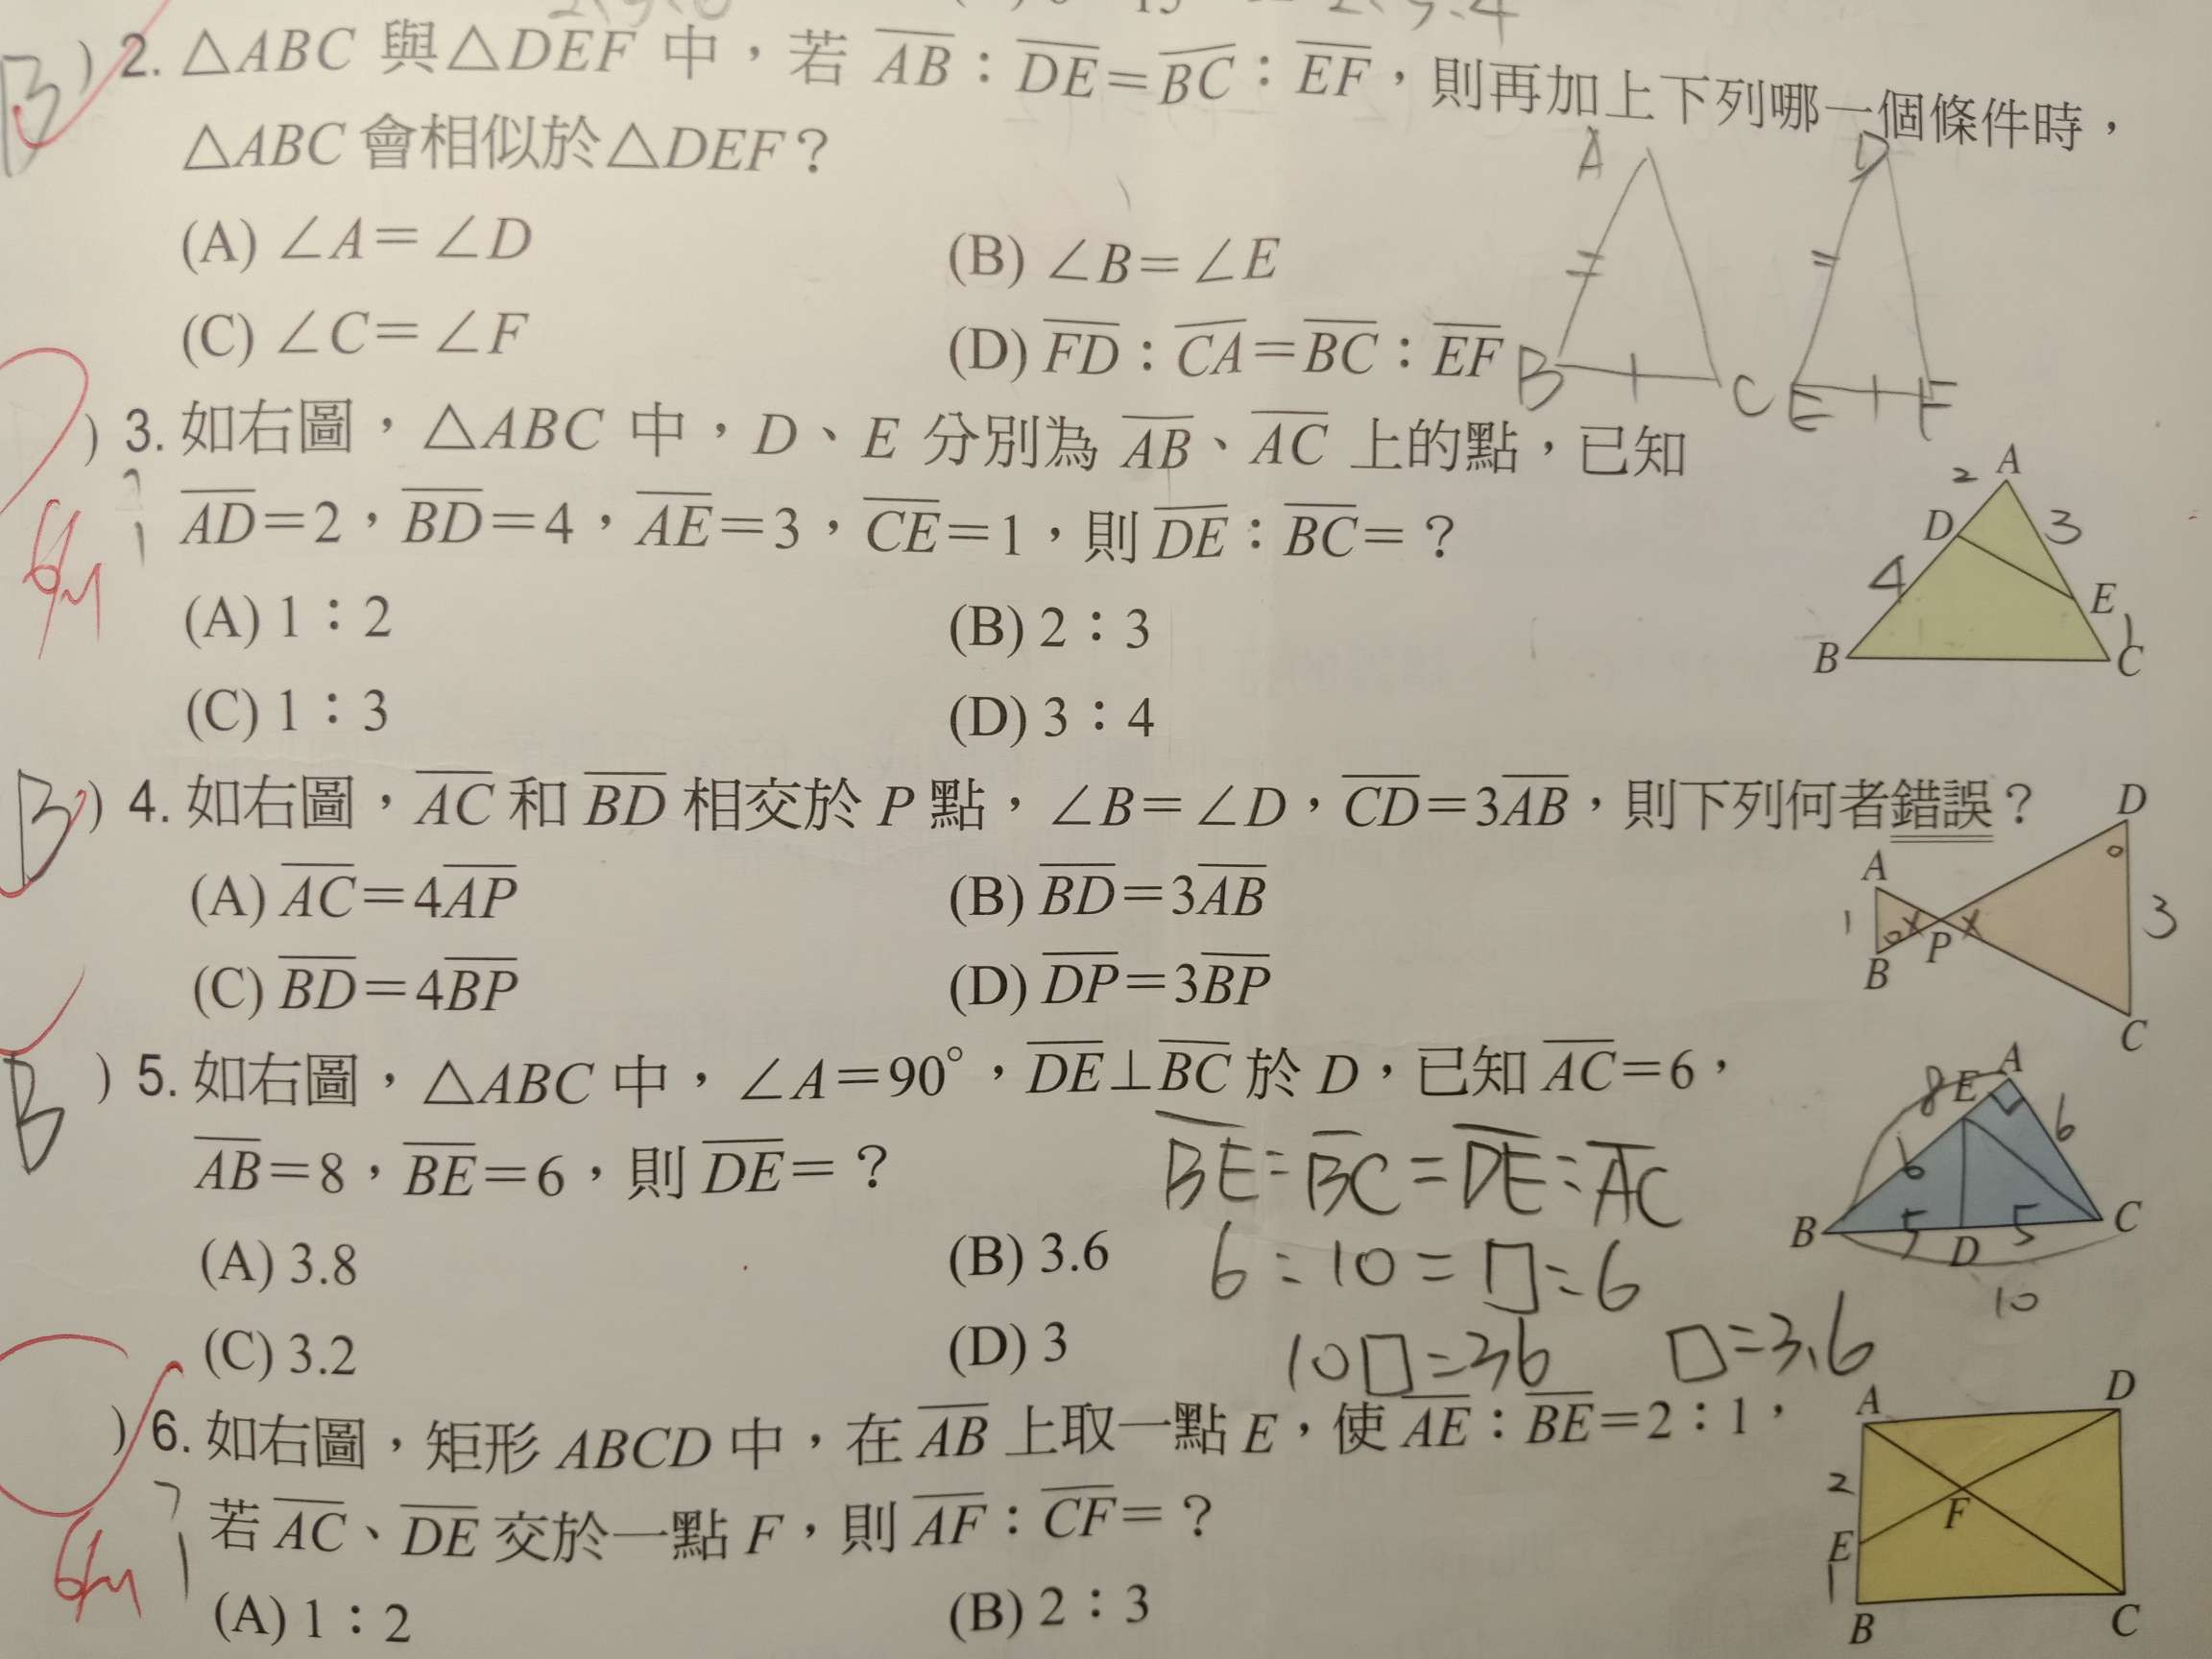 B ) 2. △ABC 與△DEF 中，若 AB：DE＝BC：EF，則再加上下列哪一個條件時，
△ABC 會相似於△DEF？
(A) ∠A＝∠D (B) ∠B＝∠E
(C) ∠C＝∠F (D) FD：CA＝BC：EF
A D
B C E F
) 3. 如右圖，△ABC 中，D、E 分別為 AB、AC 上的點，已知
AD＝2，BD＝4，AE＝3，CE＝1，則 DE：BC＝？
(A) 1：2 (B) 2：3
(C) 1：3 (D) 3：4
2 A
D 3
4 E
B C 1
B ) 4. 如右圖，AC 和 BD 相交於 P 點，∠B＝∠D，CD＝3AB，則下列何者錯誤？
(A) AC＝4AP (B) BD＝3AB
(C) BD＝4BP (D) DP＝3BP
D
A
1 P 3
B
C
B ) 5. 如右圖，△ABC 中，∠A＝90°，DE⊥BC 於 D，已知 AC＝6，
AB＝8，BE＝6，則 DE＝？
(A) 3.8 (B) 3.6
(C) 3.2 (D) 3
BE:BC=DE:AC
6:10=□:6
10□=36 □=3.6
8 E A
6 6
B 5 D 5 C
10
) 6. 如右圖，矩形 ABCD 中，在 AB 上取一點 E，使 AE：BE＝2：1，
若 AC、DE 交於一點 F，則 AF：CF＝？
(A) 1：2 (B) 2：3
A D
2 F
E
1
B C